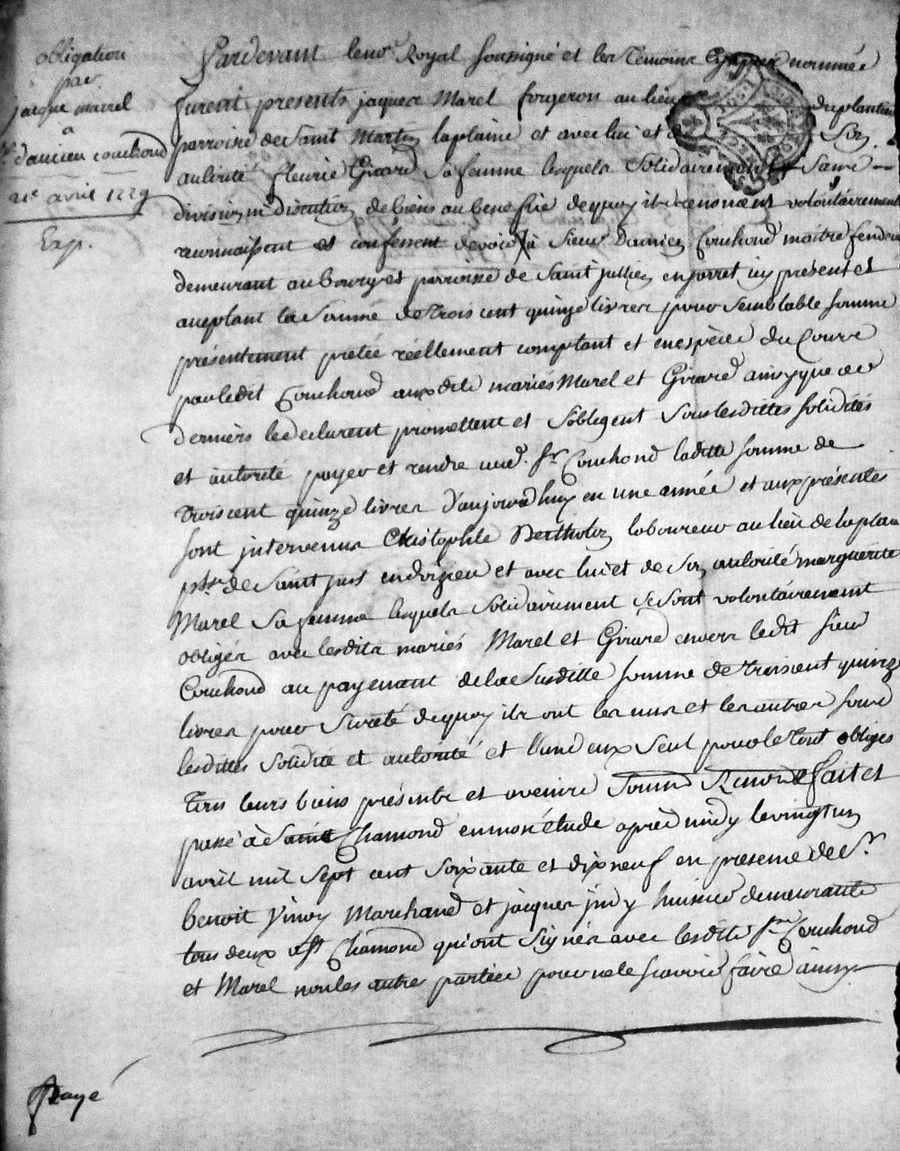 obligation
par
jacque marel
a
damien couchoud
21e avril 1779
Exp.
Pardevant le no.re Royal soussigné et les témoins nommés
furent présents jaques Marel forgeron au lieu du plantin
parroisse de Saint Martin la plaine et avec lui et de Son
autorité fleurie Girard Sa femme lesquels Solidairement Sans
division ni discution de biens au benefice de quoy ils renoncent volontairement
reconnaissent et confessent devoir à Sieur Damien Couchoud maitre fendeur
demeurant au bourg et parroisse de Saint jullien en jarret icy présent et
aceptant la Somme de trois cent quinze livres pour Semblable somme
présentement pretée réellement comptant et en espèces du Cours
par ledit Couchoud auxdits mariés Marel et Girard ainsy que ces
derniers le declarent promettent et S'obligent Sous lesdittes solidités
et autorité payer et rendre aud. Sr. Couchoud laditte somme de
trois cent quinze livres d'aujourdhuy en une année et aux présentes
sont intervenus Christophle Bertholon laboureur au lieu de la plan
psse. de Saint just en doizieu et avec lui et de Son autorité marguerite
Marel Sa femme lesquels Solidairement Se Sont volontairement
obligés avec lesdits mariés Marel et Girard envers ledit Sieur
Couchoud au payement de la Susditte Somme de trois cent quinze
livres pour Sureté de quoy ils ont les uns et les autres sous
lesdittes Solidité et autorité et l'un d'eux Seul pour le tout obligés
tous leurs biens présents et avenirs Soumis Renoncé fait et
passé à Saint Chamond en mon étude après midy le vingt un
avril mil Sept cent Soixante et dix neuf en présence de Sr.
benoit Vinoy Marchand et jacques huissier demeurants
tous deux a St. Chamond qui ont Signés avec lesdits Srs. Couchoud
et Marel non les autres parties pour ne le Scavoir faire ainsy
Payé